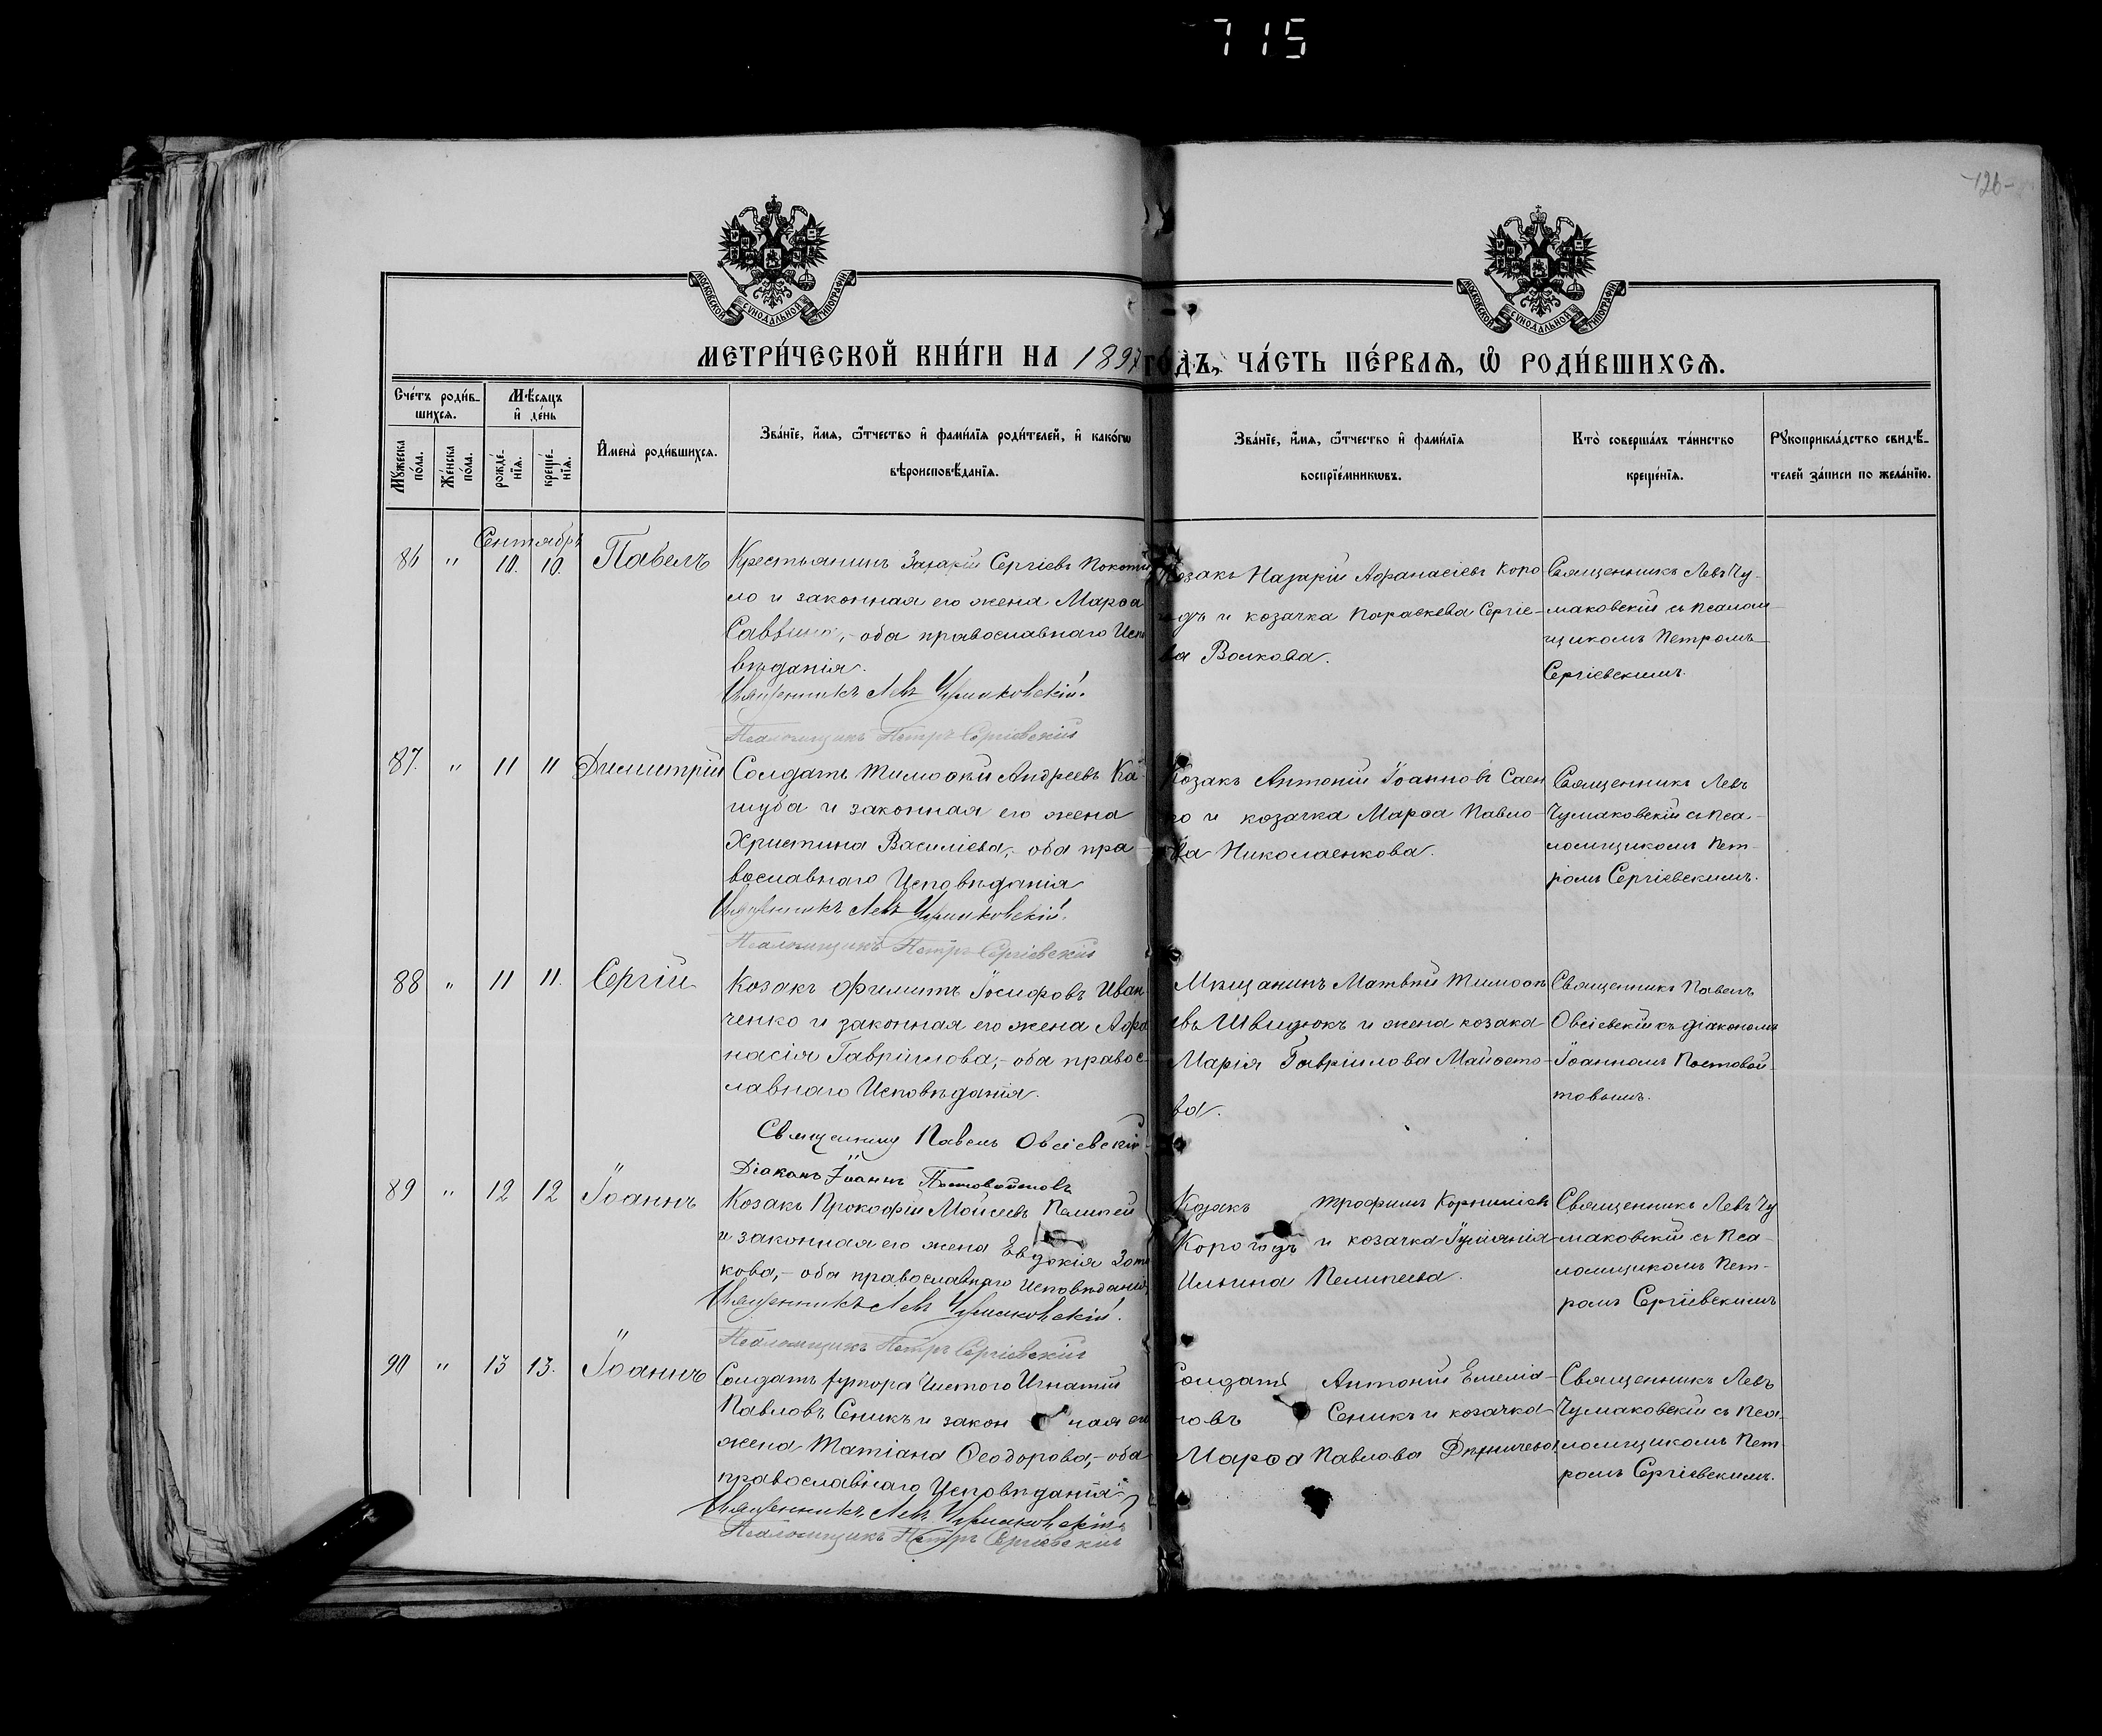 715
126
МОСКОВСКОЙ СѴНОДАЛЬНОЙ ТИПОГРАФІИ
МОСКОВСКОЙ СѴНОДАЛЬНОЙ ТИПОГРАФІИ
МЕТРИ́ЧЕСКОЙ КНИ́ГИ НА 1897 ГО́ДЪ, ЧА́СТЬ ПЕ́РВАѦ, Ѽ РОДИ́ВШИХСѦ.
Сче́тъ роди́в-
шихсѧ.
Мꙋ́жеска по́ла.
Же́нска по́ла.
Мѣ́сѧцъ
и҆ де́нь
рожде́-
нїѧ.
креще́-
нїѧ.
И҆мена̀ роди́вшихсѧ.
Зва́нїе, и҆́мѧ, ѻ҆́тчество и҆ фами́лїѧ роди́телей, и҆ како́гѡ
вѣроисповѣ́данїѧ.
Зва́нїе, и҆́мѧ, ѻ҆́тчество и҆ фами́лїѧ
воспрїе́мникѡвъ.
Кто̀ соверша́лъ та́инство
креще́нїѧ.
Рꙋкоприкла́дство свидѣ́-
телей за́писи по жела́нїю.
Сентябрь
86 " 10. 10. Павелъ
Крестьянинъ Захарій Сергіевъ Покоти
ло и законная его жена Марѳа
Саввина,- оба православнаго Испо
вѣданія.
Священникъ Левъ Чумаковскій.
Псаломщикъ Петръ Сергіевскій
Козакъ Назарій Аѳанасіевъ Коро-
годъ и козачка Параскева Сергіе-
ва Волкова.
Священникъ Левъ Чу-
маковскій съ псалом-
щикомъ Петромъ
Сергіевскимъ.
87. " 11 11 Димитрій
Солдатъ Тимоѳей Андреевъ Ка-
шуба и законная его жена
Христина Василіева,- оба пра
вославнаго Исповѣданія
Священникъ Левъ Чумаковскій.
Псаломщикъ Петръ Сергіевскій
Козакъ Антоній Іоанновъ Саен
ко и козачка Марѳа Павло-
ва Николаенкова.
Священникъ Левъ
Чумаковскій съ пса-
ломщикомъ Пет-
ромъ Сергіевскимъ.
88 " 11 11. Сергій
Козакъ Филиппъ Іосифовъ Иван
ченко и законная его жена Аѳа
насія Гавріилова,- оба правос-
лавнаго Исповѣданія.
Священникъ Павелъ Овсіевскій
Діаконъ Іоаннъ Постовойтовъ
Мѣщанинъ Матвѣй Тимоѳе
евъ Швидюкъ и жена козака
Марія Гавріилова Майсто-
ва.
Священникъ Павелъ
Овсіевскій съ діакономъ
Іоанномъ Постовой
товымъ.
89 " 12 12 Іоаннъ
Козакъ Прокофій Моисеевъ Пелипей
и законная его жена Евдокія Зото
кова,- оба православнаго Исповѣданія
Священникъ Левъ Чумаковскій.
Псаломщикъ Петръ Сергіевскій
Козакъ Трофимъ Корниліевъ
Корогодъ и козачка Іуліанія
Ильина Пелипеева.
Священникъ Левъ Чу
маковскій съ пса-
ломщикомъ Пет-
ромъ Сергіевскимъ
90 " 13 13. Іоаннъ
Солдатъ хутора Чистого Игнатій
Павловъ Сеникъ и законная его
жена Татіана Ѳеодорова,- оба
православнаго Исповѣданія
Священникъ Левъ Чумаковскій.
Псаломщикъ Петръ Сергіевскій
Солдатъ Антоній Емелія-
новъ Сеникъ и козачка
Марѳа Павлова
Священникъ Левъ
Чумаковскій съ пса-
ломщикомъ Пет-
ромъ Сергіевскимъ.